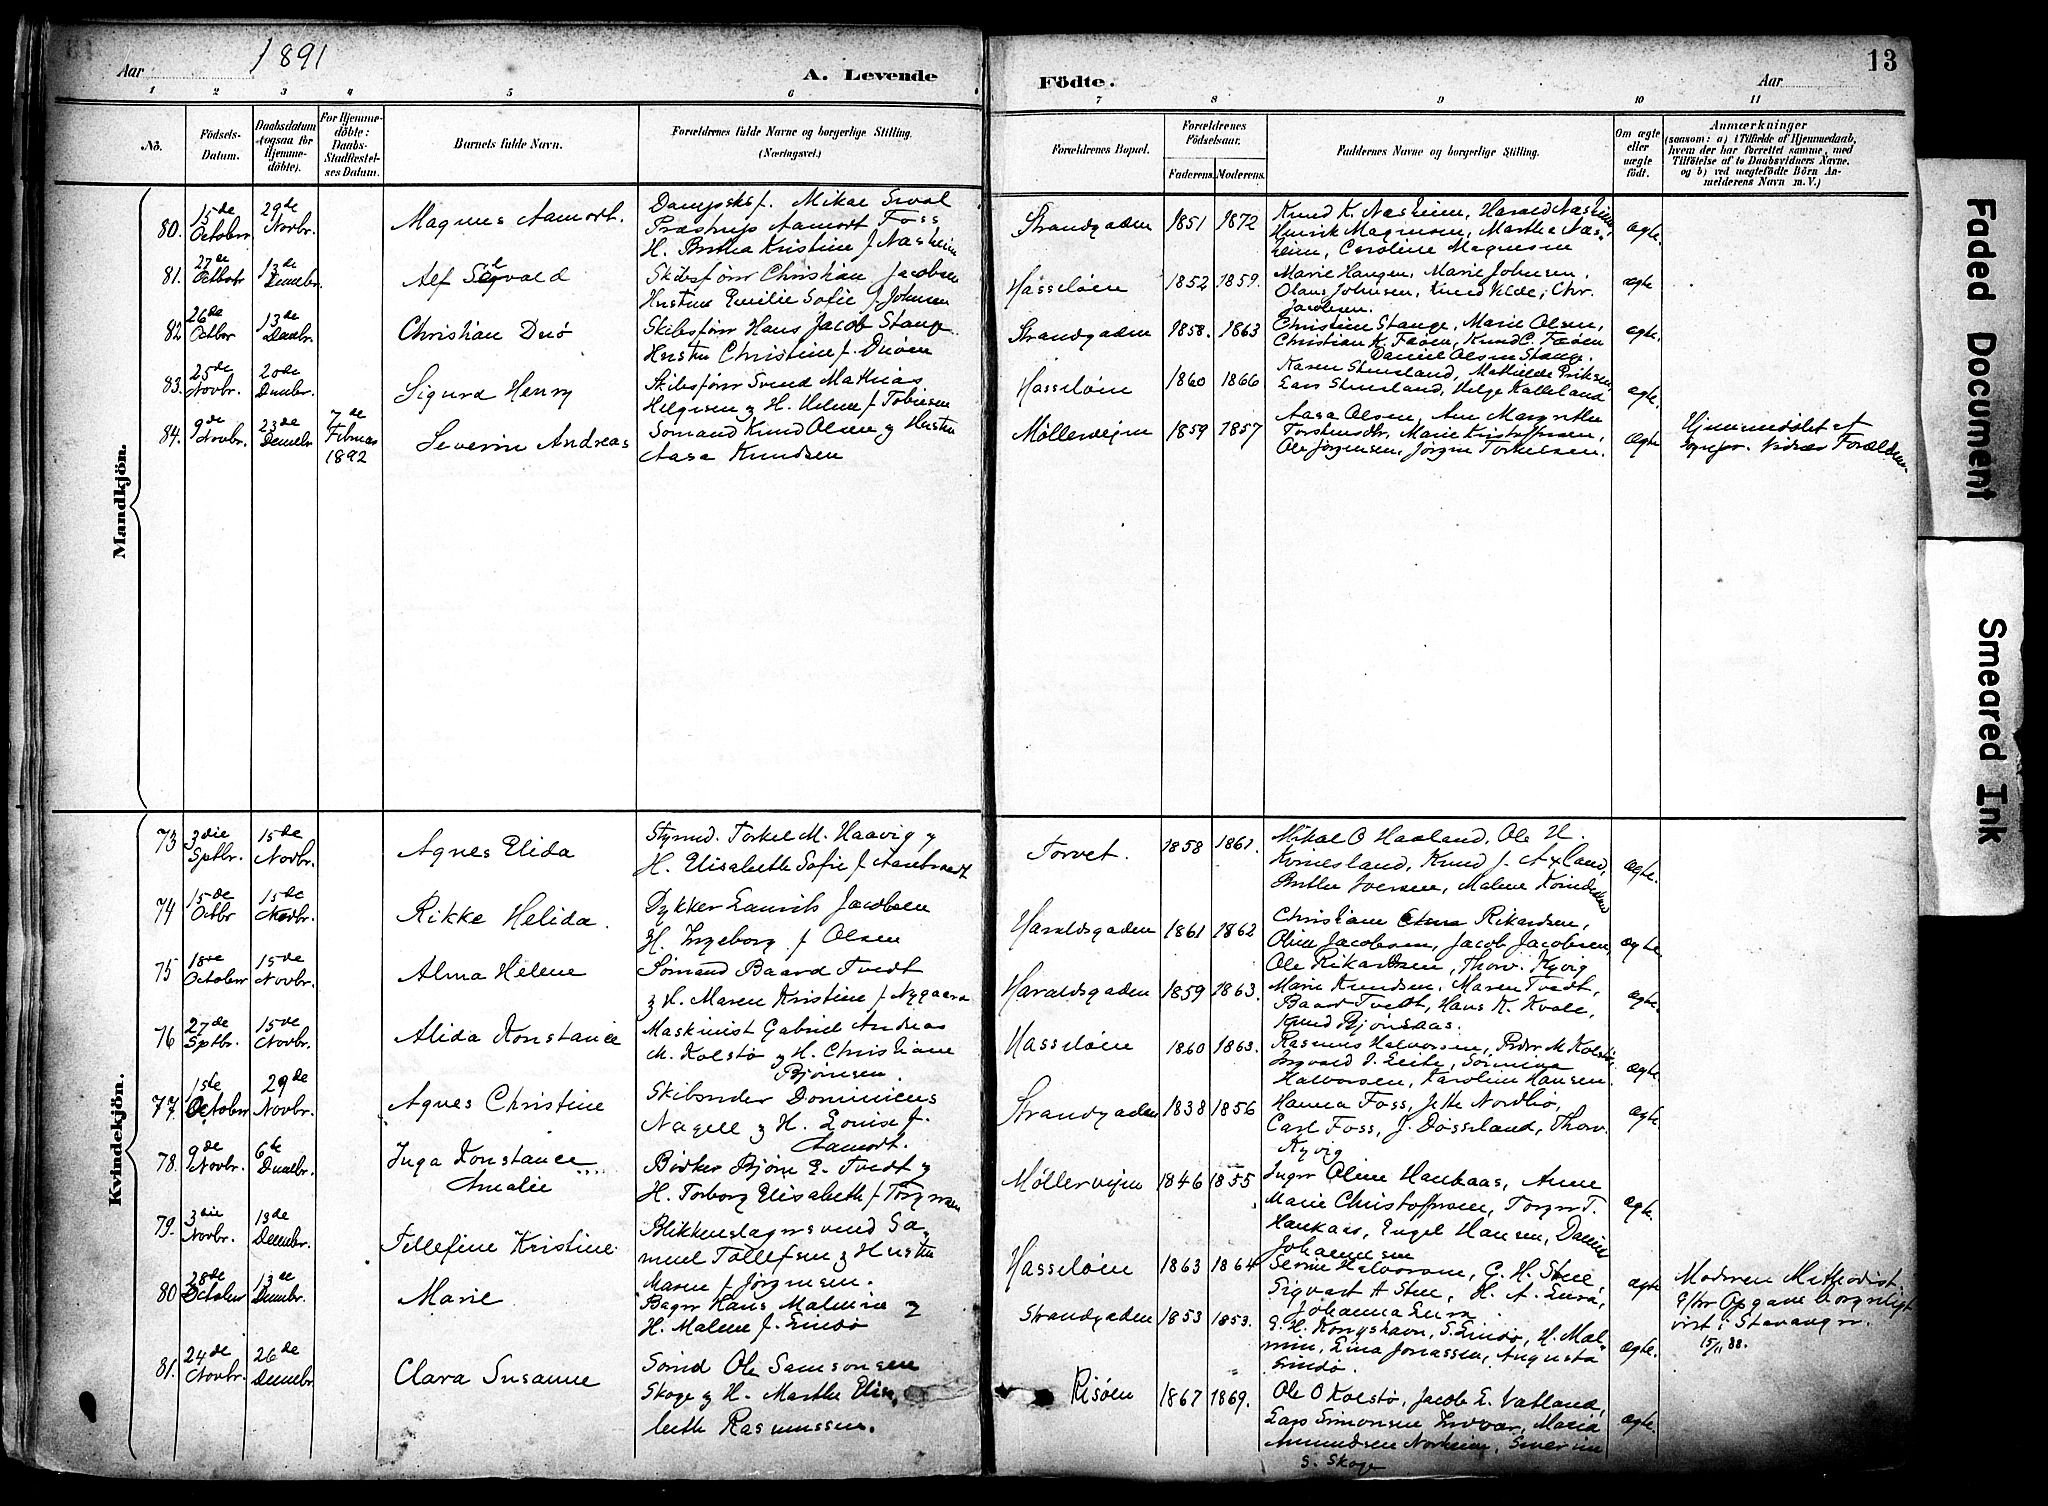 Aar 1891
A. Levende
Födte.
Aar
13
1 2 3 4 5 6
7 8 9 10 11
No.
Födsels-Datum.
Daabsdatum (ogsaa for Hjemme-döbte).
For Hjemme-döbte: Daabs-Stadfæstel-ses Datum.
Barnets fulde Navn.
Forældrenes fulde Navne og borgerlige Stilling.
(Næringsvei.)
Forældrenes Bopæl.
Forældrenes Födselsaar.
Faderens. Moderens.
Faddernes Navne og borgerlige Stilling.
Om ægte eller uægte födt.
Anmærkninger
(saasom: a) i Tilfælde af Hjemmedaab,
hvem der har forrettet samme, med
Tilföielse af to Daabsvidners Navne.
og b) ved uægtefödte Börn An-
melderens Navn m. V.)
Mandkjön.
80. 15de Octobr 29de Novbr. Magnus Aamodt.
Foss
H. Berthea Kristine f. Næsheim
Strandgaden 1851 1872
Knud K. Næsheim, Harald Næsheim,
Henrik Magnesen, Marthea Næs-
heim, Caroline Magnesen
ægte.
81. 27de Octobr 13de Dcmbr. Alf Sigvald
Skibsförer Christian Jacobsen
Hustru Emilie Sofie f. Johnsen
Hasseløen 1852 1859.
Marie Haugen, Marie Johnsen,
Olaus Johnsen, Knud Velde, Chr.
Jacobsen.
ægte
82 26de Octbr 13de Dcmbr. Christian Duö
Skibsförer Hans Jacob Stange
Hustru Christine f. Duöen
Strandgaden 1858. 1863
Christine Stange, Marie Olsen,
Christian K. Fæöen, Knud C. Fæöen
Daniel Olsen Stange.
ægte.
83. 25de Novbr. 20de Dcmbr. Sigurd Henry
Skibsförer Svend Mathias
Helgesen & H. Helene f. Tobiesen
Hasseløen 1860 1866
Karen Stensland, Mathilde Eriksen,
Lars Stensland, Helge Kalleland
ægte.
84. 9de Novbr. 23de Decmbr 7de Februar 1892 Severin Andreas
Sömand Knud Olsen & Hustru
Aasa Knudsen
Møllerveien 1859 1857
Aasa Olsen, Ane Margrethe
Torstensdtr, Marie Kristoffersen,
Ole Jörgensen, Jörgen Torkelsen.
ægte
Hjemmedöbt af
Sognepr. Vidner Forældrene
Kvindekjön.
73 3die Sptbr. 15de Novbr. Agnes Elida
Styrmd. Torkel M. Haavig &
H. Elisabeth Sofie f. Aanbraadt
Torvet. 1858 1861.
Mikal O Haaland, Ole H.
Kvinesland, Knud J. Axland,
Berthe Iversen, Malene Kvinesland
ægte.
74 15de Octbr 15de Novbr. Rikke Helida.
Dykker Laurits Jacobsen
H. Ingeborg f. Olsen
Haraldsgaden 1861 1862
Christiane Rikardsen,
Oline Jacobsen, Jacob Jacobsen,
Ole Rikardsen, Thorv. Kyvig
ægte.
75 18de Octobr 15de Novbr. Alma Helene
Sömand Baard Tvedt
& H. Maren Kristine f. Nygaard
Haraldsgaden 1859 1863.
Marie Knudsen, Maren Tvedt,
Baard Tvedt, Hans K. Kvale,
Knud Bjönsaas.
ægte.
76 27de Sptbr. 15de Novbr. Alida Konstance
Maskinist Gabriel Andreas
M. Kolstö & H. Christiane
Björnsen.
Hasseløen 1860 1863.
Rasmus Halvorsen, Peder M. Kolstö
Ingvald J. Leite, Sörine
Halvorsen, Karoline Hansen.
ægte.
77. 15de Octobr 29de Novbr. Agnes Christine
Skibsreder Dominicus
Nagell & H. Louise f.
Aamodt.
Strandgaden 1838 1856
Hanna Foss, Jette Nordbö,
Carl Foss, J. Dösseland, Thorv.
Kyvig
ægte.
78. 9de Novbr. 6te Dcmbr. Inga Konstance
Amalie
Bödker Björn E. Tvedt &
H. Torborg Elisabeth f. Torgersen
Møllerveien 1846 1855
Inger Oline Haukaas, Anne
Marie Christoffersen, Torger T.
Haukaas, Engel Hansen, Daniel
Johannesen
ægte.
79. 3die Novbr. 13de Decmbr. Tellefine Kristine
Blikkenslagersvend Sa-
muel Tollefsen & Hustru
Maren f. Jörgensen.
Hasseløen 1863 1864
Serine Halvorsen, G. H. Stue,
Sigvart A Stue, H. A. Lura,
Johanna Lura
ægte
80 28de Octobr 13de Dcmbr. Marie
Bager Hans Malmin &
H. Malene f. Lindö
Strandgaden 1853 1853.
G. H. Kongshavn, T. Lindö, H. Mal-
min, Lina Jonassen, Augusta
Lindö.
ægte.
Moderen Methodist.
Efter Opgave borgerligt
viet i Stavanger.
15/11 88.
81. 24de Novbr. 26de Dcmbr. Clara Susanne
Sömd Ole Samsonsen
Skoge & H. Marthe Elisa-
beth Rasmussen.
Risöen 1867 1869.
Ole O Kolstö, Jacob E. Vatland,
Lars Simonsen, Maria
Amundsen Norheim, Severine
S. Skoge
ægte.
Faded Document
Smeared Ink